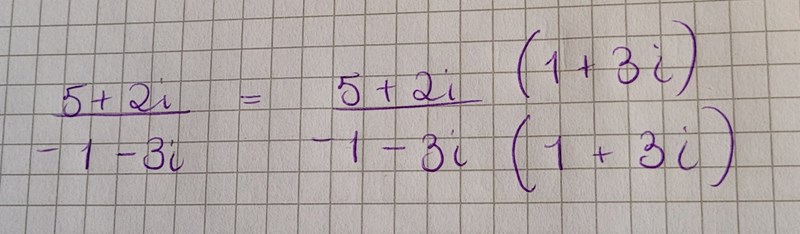 5 + 2i = 5 + 2i (1 + 3i)
-1 - 3i -1 - 3i (1 + 3i)